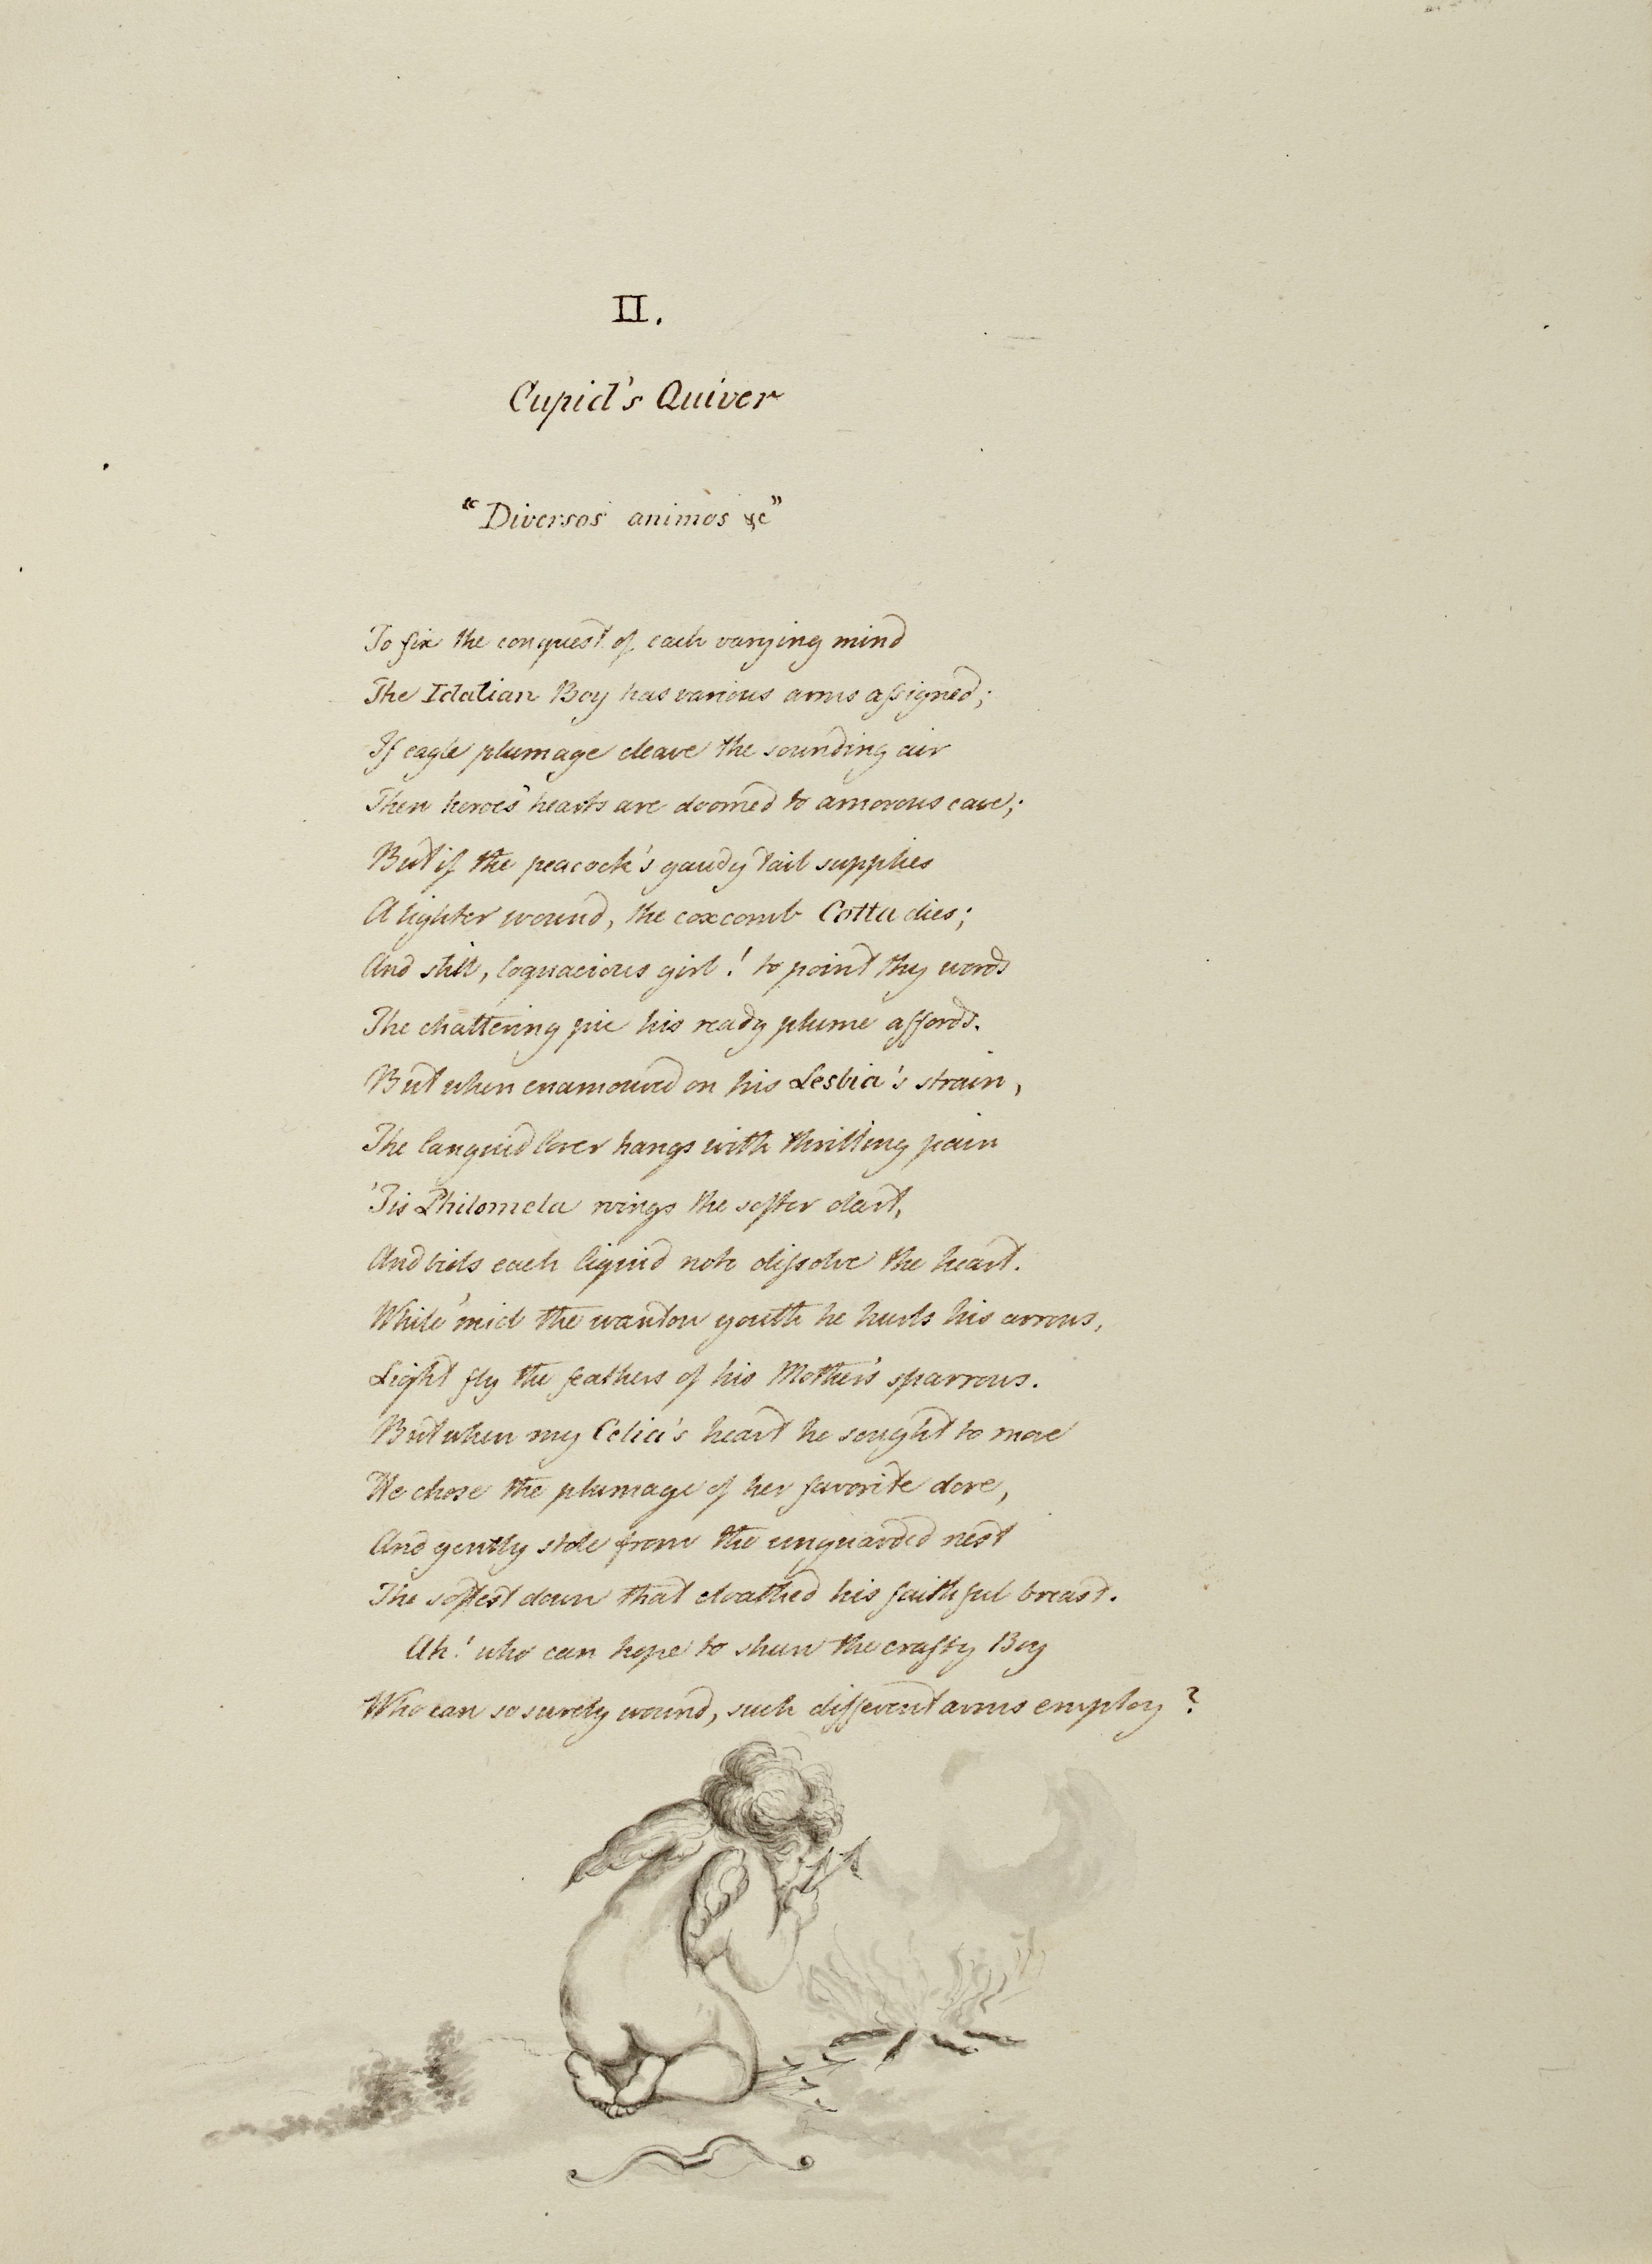 II.
Cupid's Quiver
"Diversos animos &c"
To fix the conquest of each varying mind
The Idalian Boy has various arms assigned;
If eagle plumage cleave the sounding air
Then heroes' hearts are doomed to amorous care;
But if the peacock's gaudy tail supplies
A lighter wound, the coxcomb Cotta dies;
And still, loquacious girl! to point thy words
The chattering pie his ready plume affords.
But when enamoured on his Lesbia's strain,
The languid lover hangs with thrilling pain
'Tis Philomela wings the softer dart,
And bids each liquid note dissolve the heart.
While 'mid the wanton youth he hurls his arrows,
Light fly the feathers of his Mother's sparrows.
But when my Celia's heart he sought to move
He chose the plumage of her favorite dove,
And gently stole from the unguarded nest
The softest down that cloathed his faithful breast.
Ah! who can hope to shun the crafty Boy
Who can so surely wound, such different arms employ?